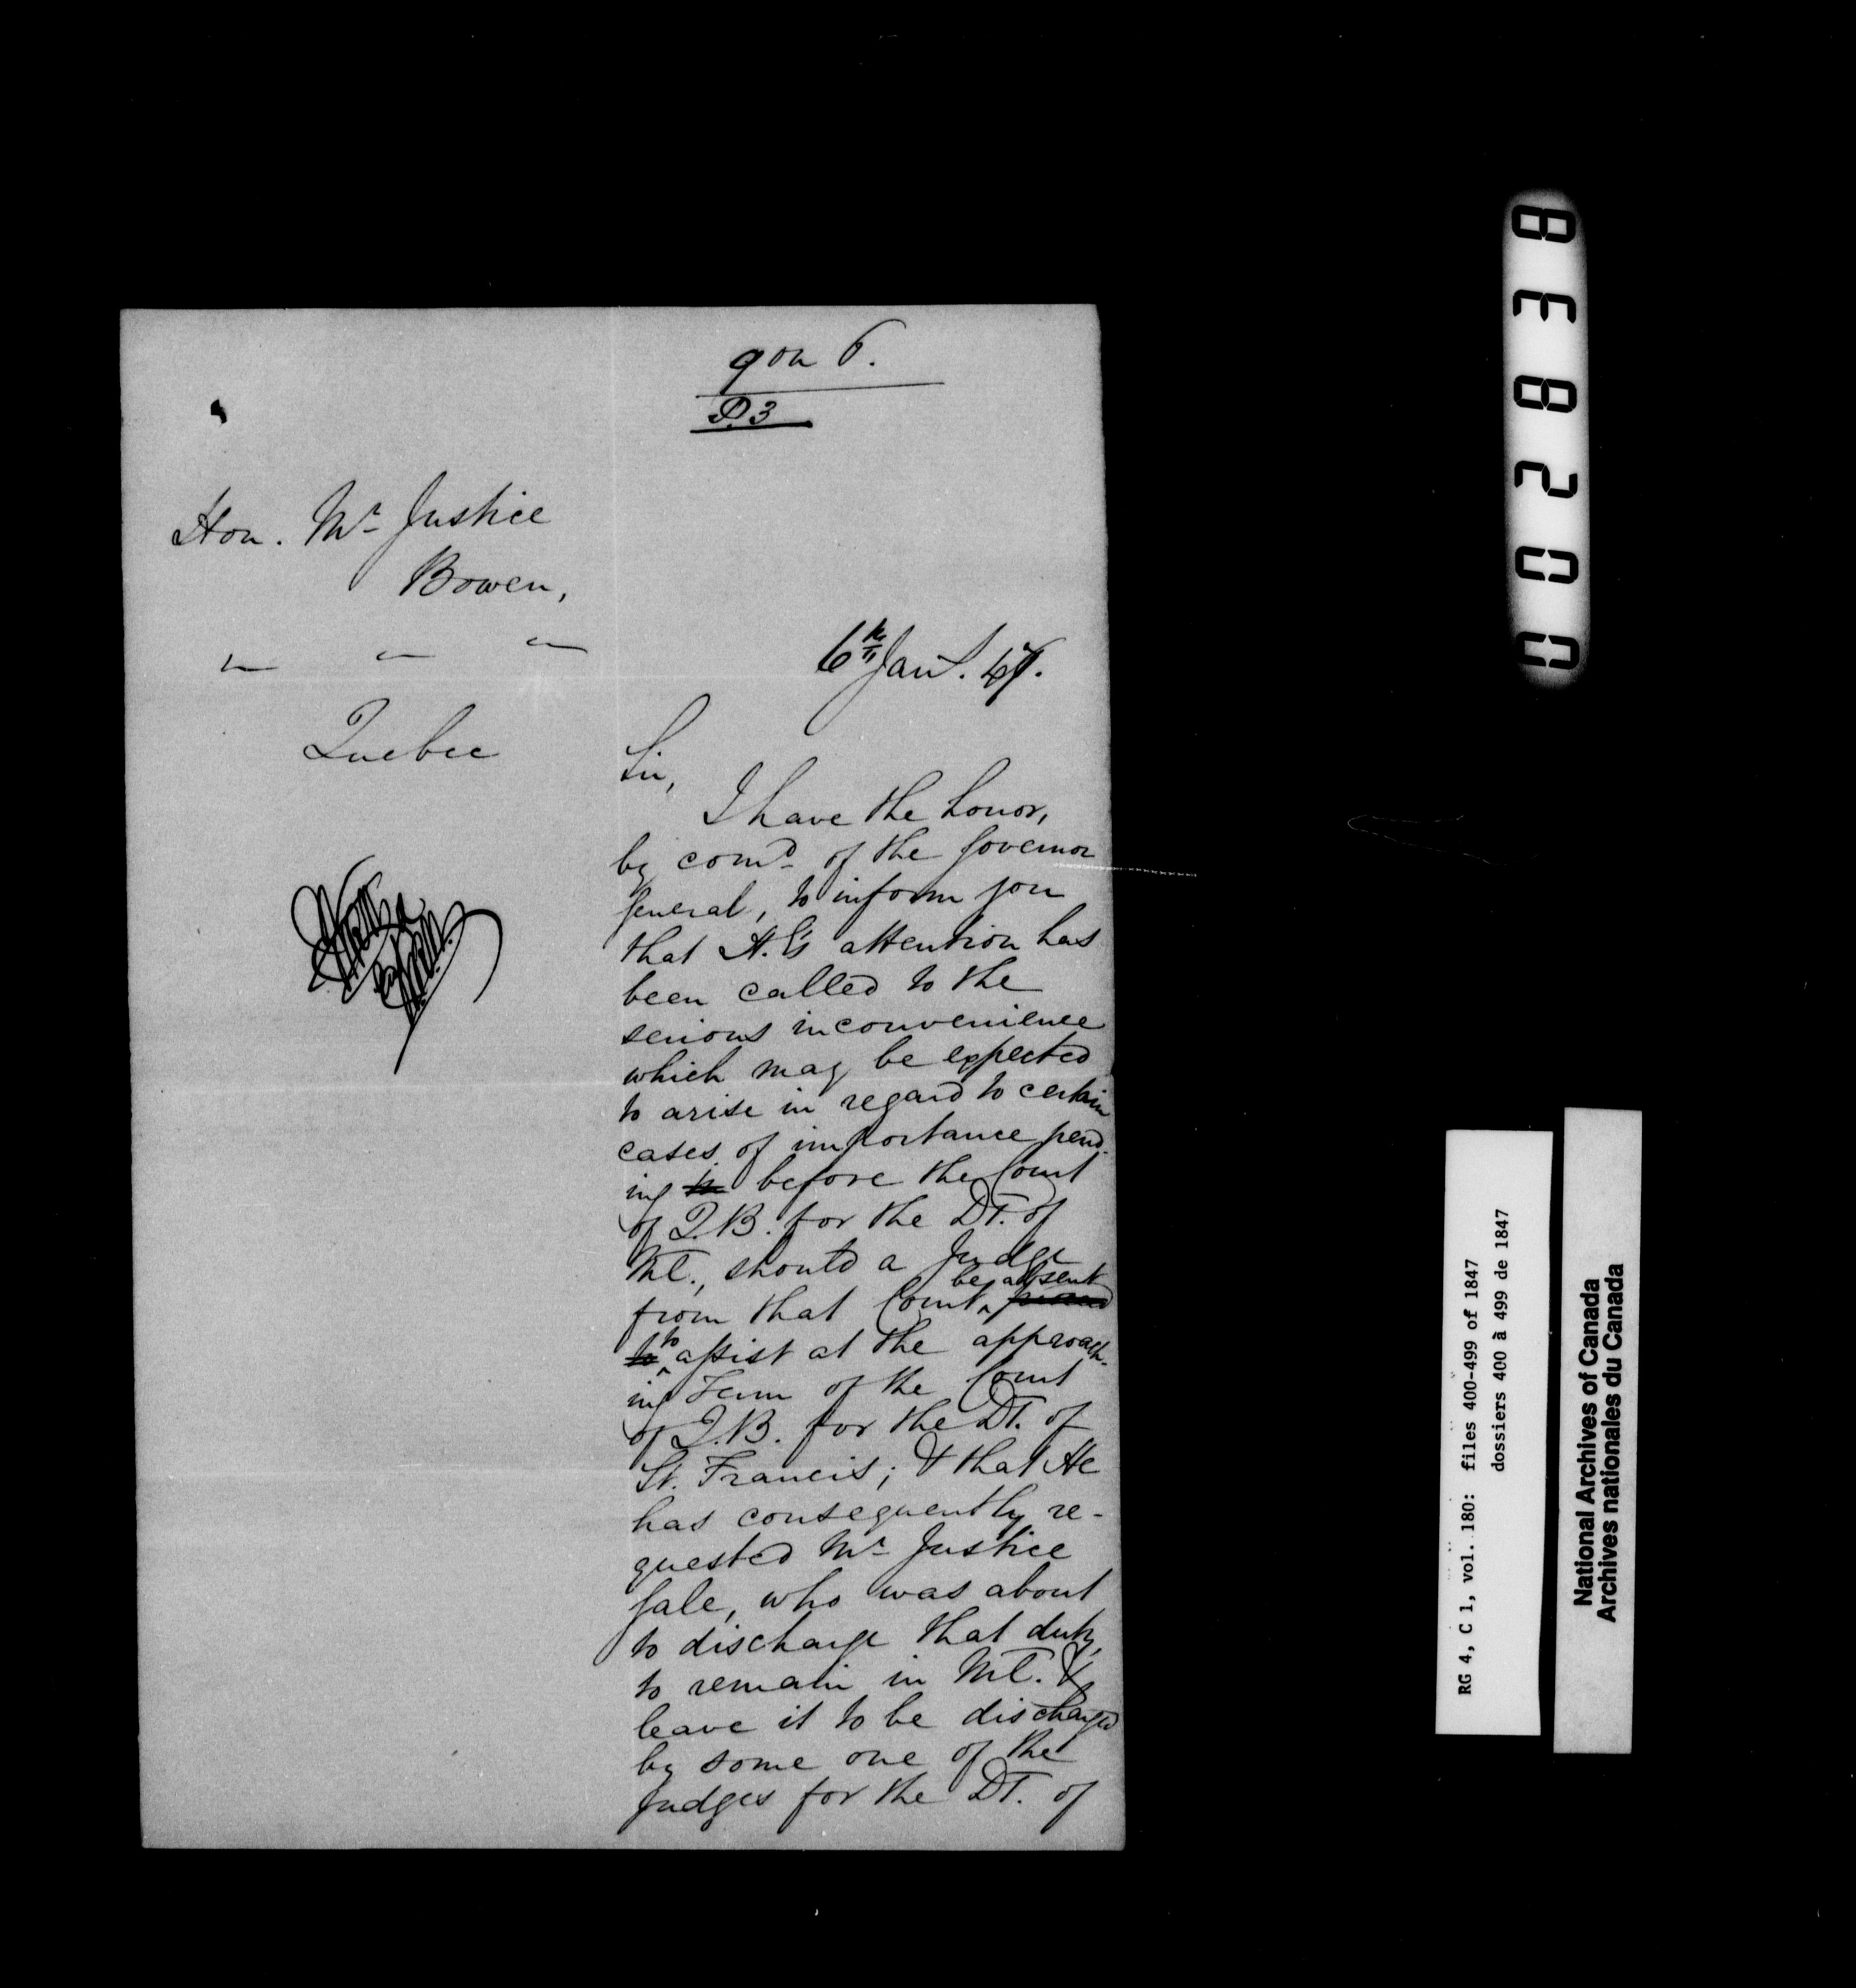 P.3
Hon. Mr Justice
Bowen,
Quebec
6th Jany. 47.
Sir,
I have the honor,
by comd of the Governor
General, to inform you
that H.E's attention has
been called to the
serious inconvenience
which may be expected
to arise in regard to certain
cases of importance pend-
ing before the Court
of Q.B. for the DT. of
Ml., should a Judge
be absent
from that Court
to assist at the approach-
ing Term of the Court
of Q.B. for the DT. of
St. Francis; & that He
has consequently re-
quested Mr Justice
Gale, who was about
to discharge that duty,
to remain in Ml. &
leave it to be discharged
by some one of the
Judges for the DT. of
002838
RG 4, C 1, vol. 180: files 400-499 of 1847
dossiers 400 à 499 de 1847
National Archives of Canada
Archives nationales du Canada